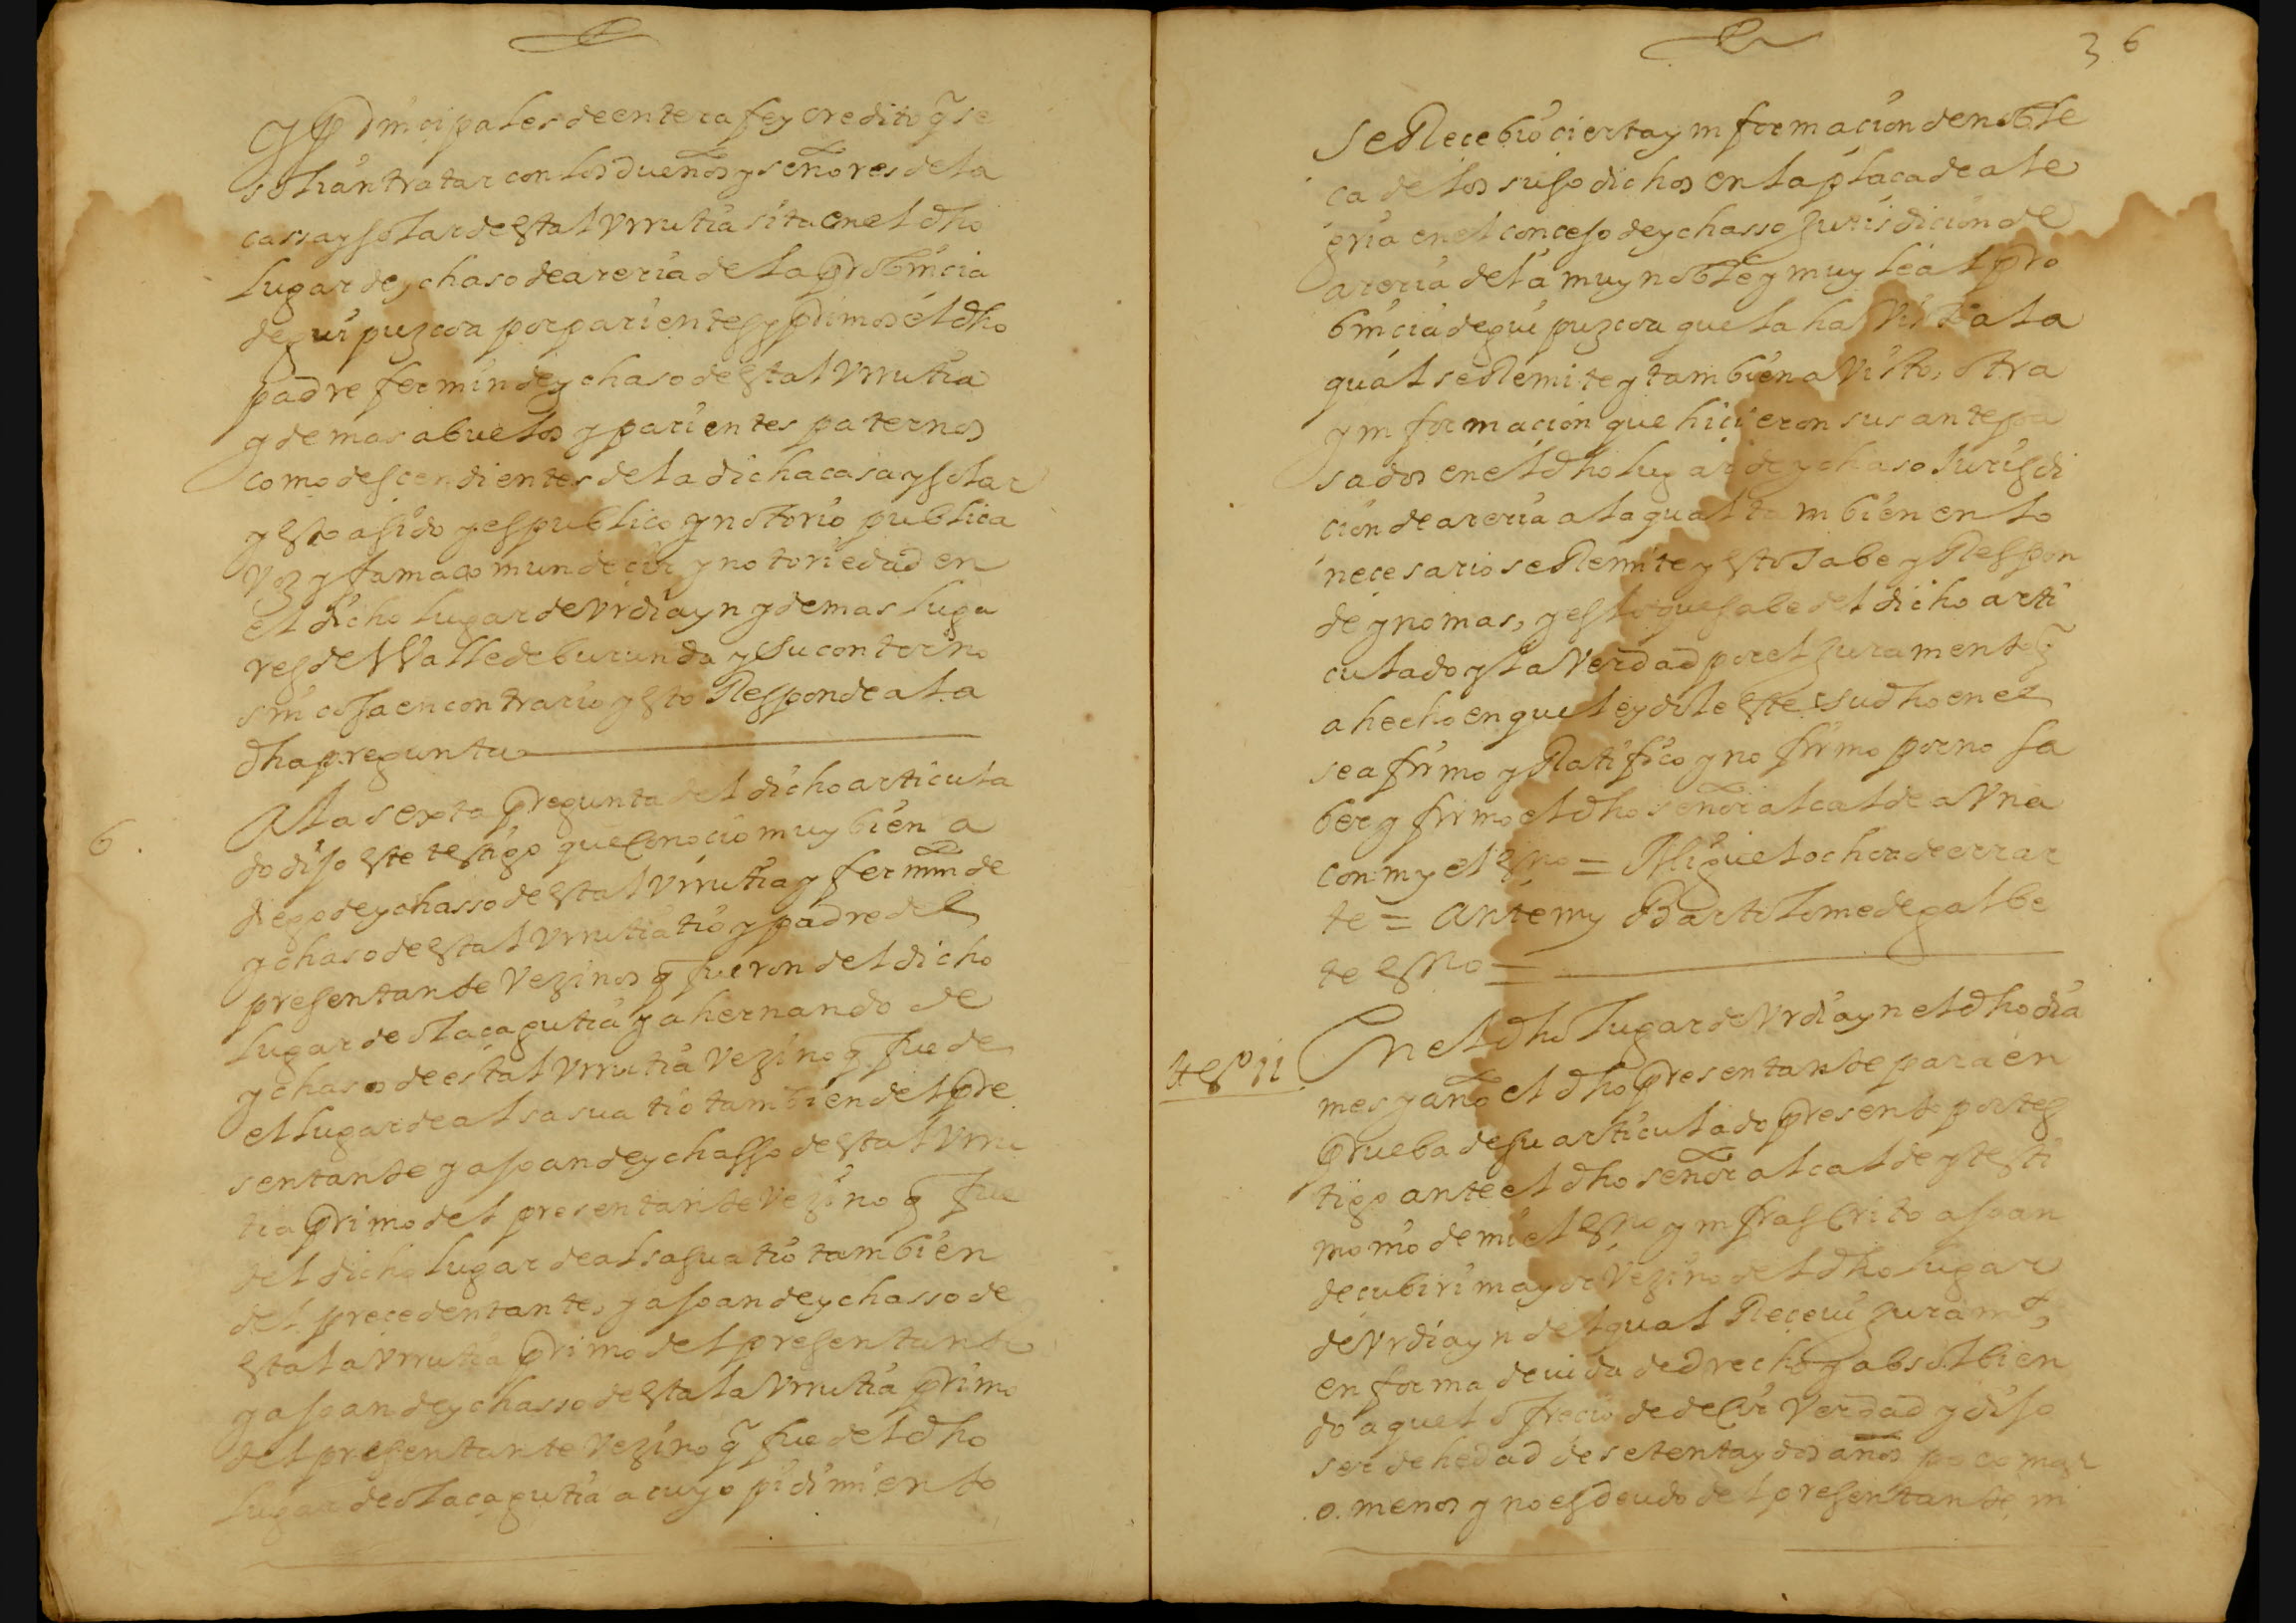 y principales de entera fey credito q̃ se
solian tratar con los dueños y señores de la
cassa y solar de estal Vrrutia sita en el dho
lugar de ychaso de areria de la probincia
de guipuzcoa por parientes y primos el dho
padre fermin de ychaso de estal Vrrutia
y demas abuelos y parientes paternos
como descendientes de la dicha casa y solar
y esto a sido y es publico y notorio publica
voz y fama comun decir y notoriedad en
el dicho lugar de Vrdiayn y demas luga
res del Valle de burunda y su contorno
sin cosa en contrario y esto Responde a la
dha pregunta
6. A la sexta pregunta del dicho articula
do dijo este testigo que Conocio muy bien a
diego de ychasso de estal Vrrutia y fermin de
ychaso de estal Vrrutia tio y padre del
presentante Vezinos q̃ fueron del dicho
lugar de olaçagutia y a hernando de
ychaso de estal Vrrutia Vezino q̃ fue de
el lugar de alsasua tio tambien del pre
sentante y a joan de ychasso de estal Vrru
tia primo del presentante Vezino q̃ fue
del dicho lugar de alsasua tio tambien
del precedentante, y a joan de ychasso de
estala Vrrutia primo del presentante
y a joan de ychasso de estala Vrrutia primo
del presentante Vezino q̃ fue del dho
lugar de olaçagutia a cuyo pidimiento
36
se Recebio cierta ynformacion de noble
ca de los suso dichos en la plaça de ale
gria en el concejo de ychasso Jurisdicion de
areria de la muy noble y muy leal pro
bincia de guipuzcoa que la ha Visto a la
qual se Remite y tambien a Visto, otra
ynformacion que hicieron sus antepa
sados en el dho lugar de ychaso Jurisdi
cion de areria a la qual tambien en lo
necesario se Remite y esto sabe y Respon
de y no mas, y es lo que sabe del dicho arti
culado y la Verdad por el Juramento q̃
a hecho en que leydole este su dho en el
se afirmo y Ratifico y no firmo por no sa
ber y firmo el dho señor alcalde a Vna
con my el essno = Miguel ochoa de errar
te = ante my Bartolome de galbe
te essno =
tesº 11. En el dho lugar de Vrdiayn el dho dia
mes y año el dho presentante para en
prueba de su articulado presento por tes
tigo ante el dho señor alcalde y testi
monio de mi el essno ynfrascrito a joan
de cubiri mayor Vezino del dho lugar
de Vrdiayn del qual Receui juramto,
en forma deuida de drecho y absolbien
do a quel ofrecio de deCir Verdad y dijo
ser de hedad de setenta y dos años poco mas
o. menos y no es deudo del presentante ni